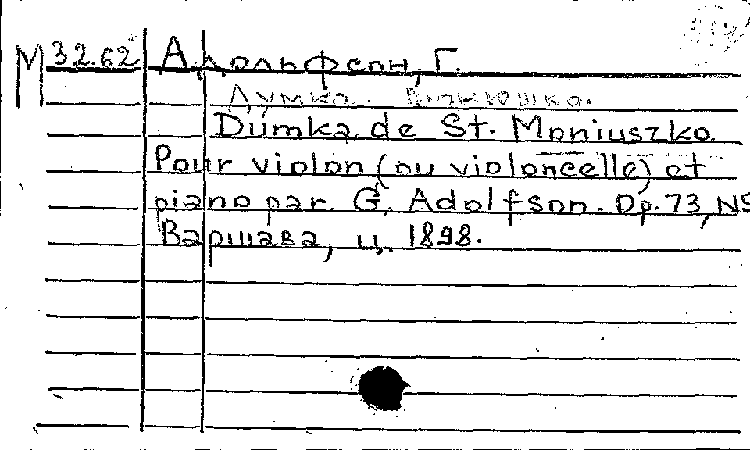 М 32.62 Адольфсон, Г.
Думка.
Dumka de St. Moniuszko.
Pour violon (ou violoncelle) et
piano par. G. Adolfson. Op. 73, N5
Варшава, ц. 1898.